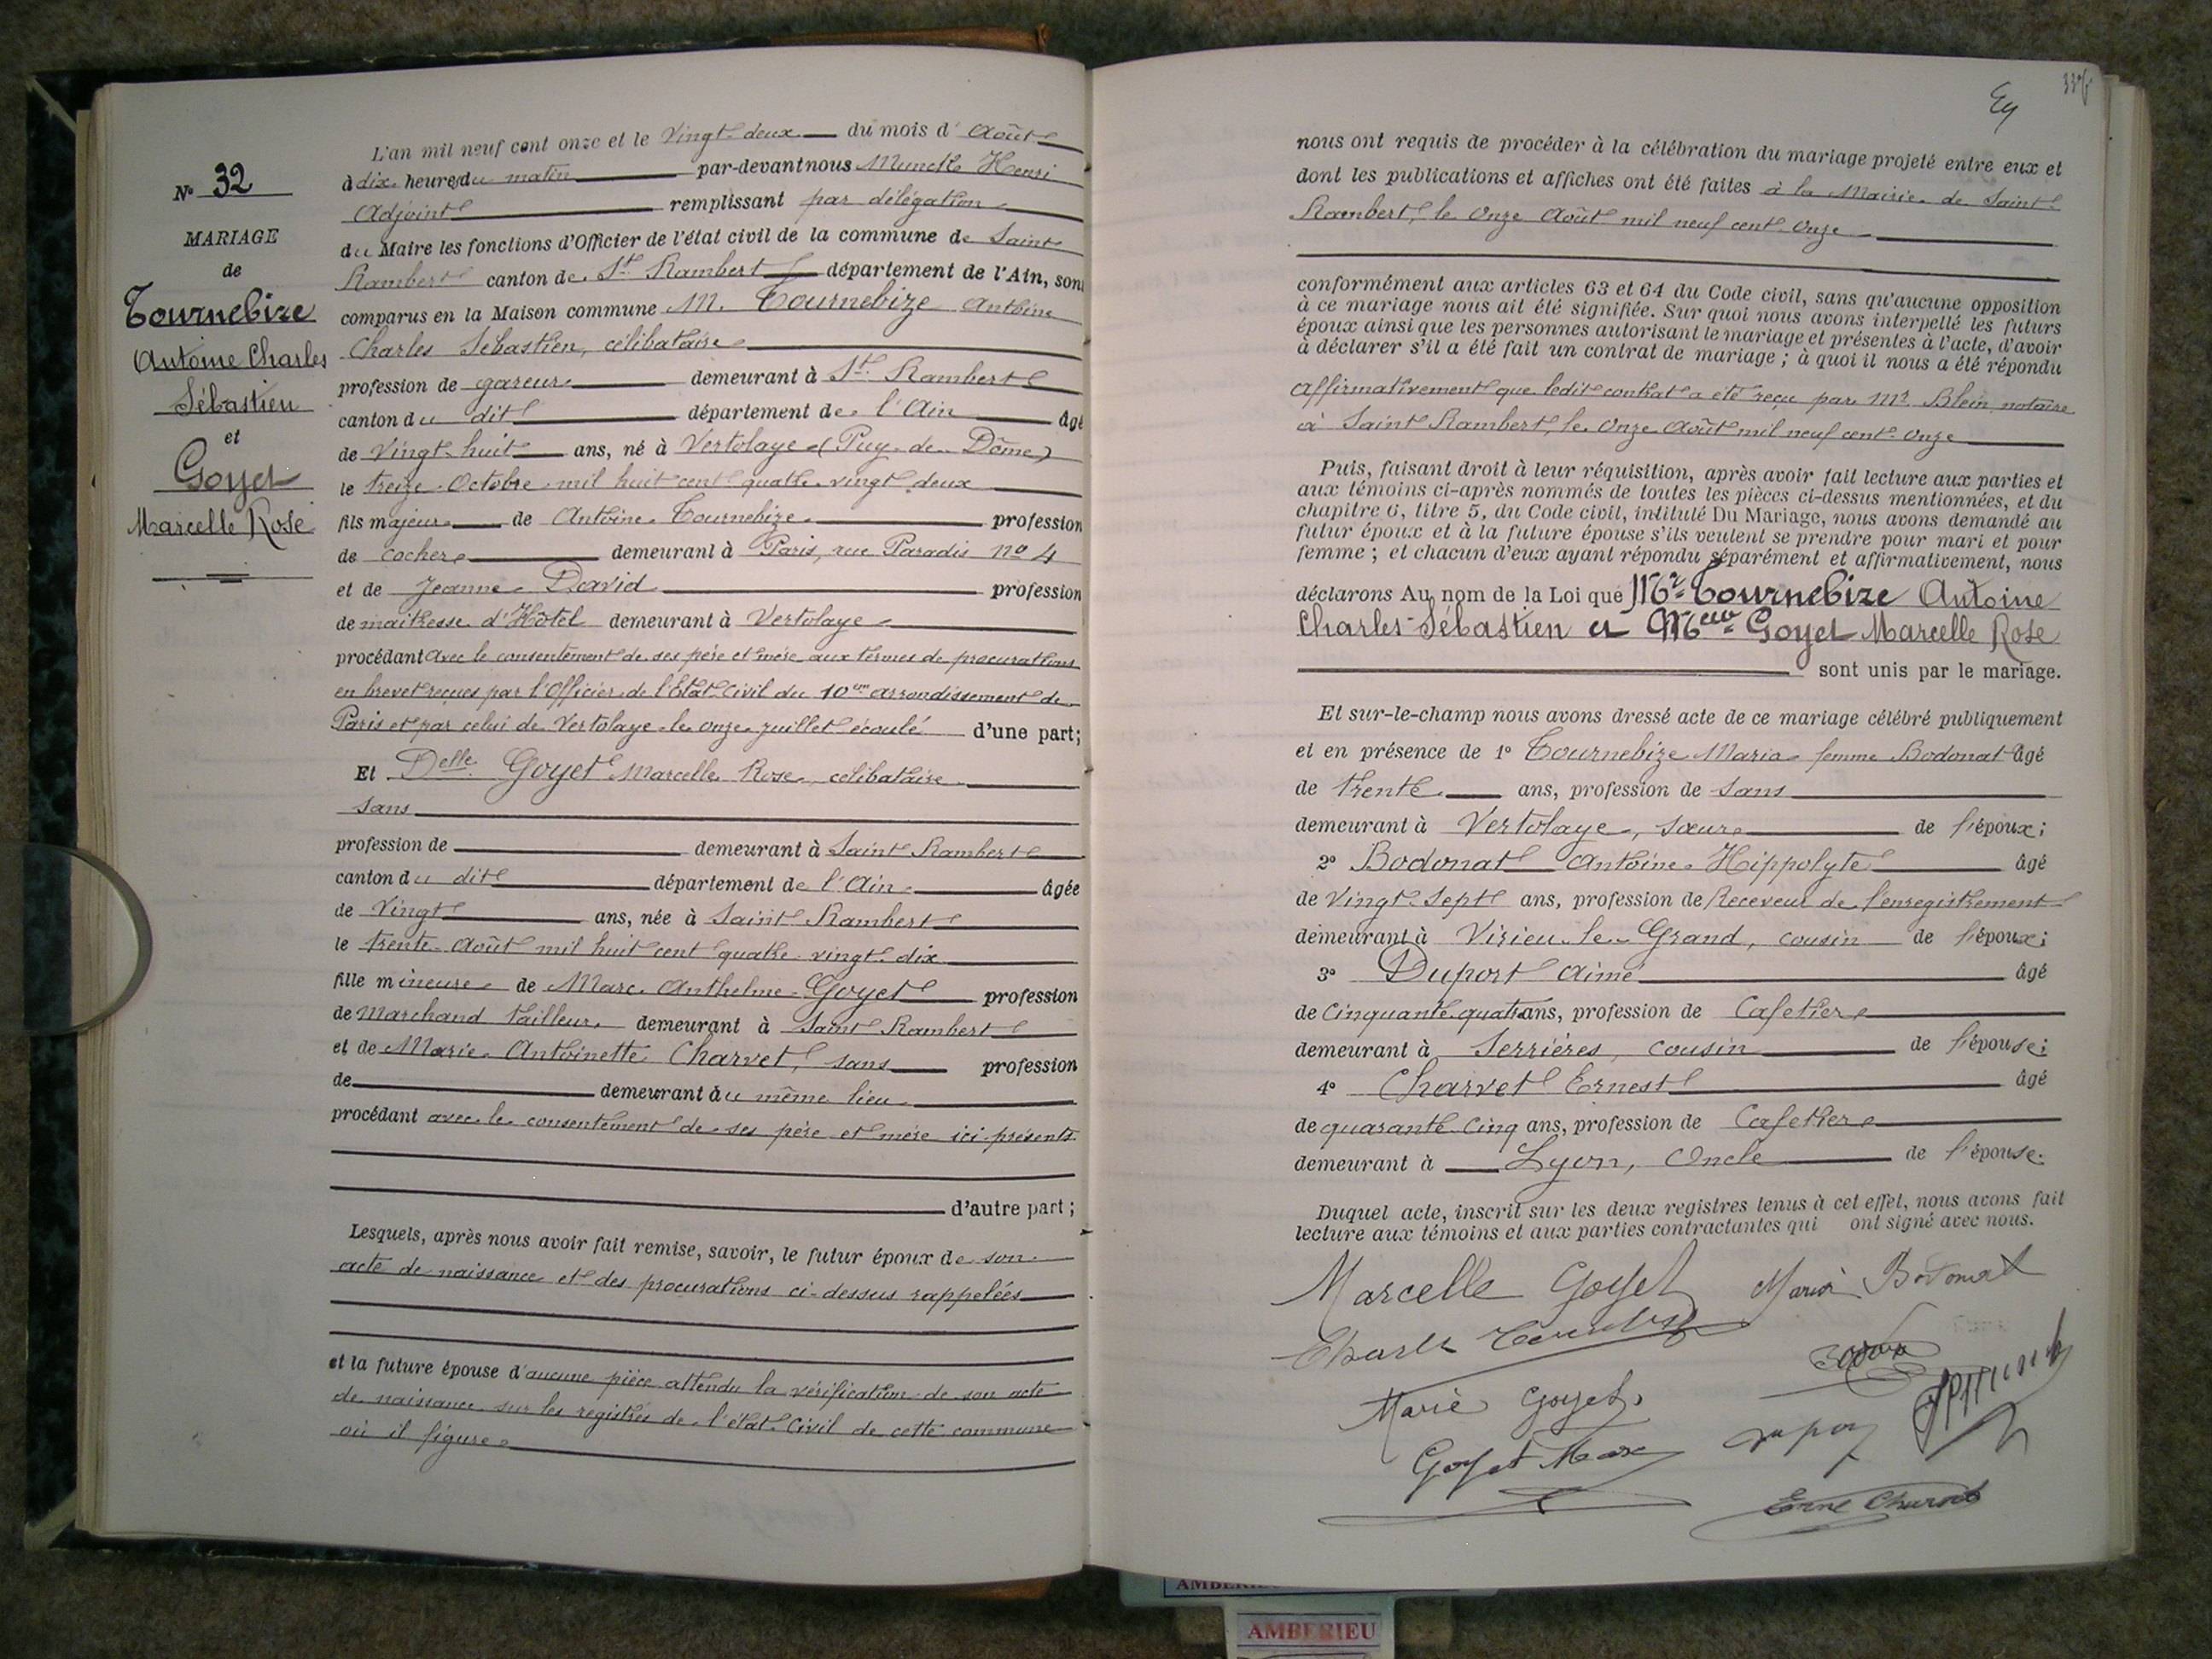 N° 32
MARIAGE
de
Tournebize
Antoine Charles
Sébastien
et
Goyet
Marcelle Rose
L'an mil neuf cent onze et le Vingt-deux du mois d' Août
à dix heures du matin par-devant nous Munck Henri
Adjoint remplissant par délégation
du Maire les fonctions d'Officier de l'état civil de la commune de Saint
Rambert canton de St Rambert département de l'Ain, sont
comparus en la Maison commune M. Tournebize Antoine
Charles Sébastien, célibataire
profession de gareur demeurant à St Rambert
canton du dit département de l'Ain âgé
de Vingt-huit ans, né à Vertolaye (Puy-de-Dôme)
le treize Octobre mil huit cent quatre-vingt deux
fils majeur de Antoine Tournebize profession
de cocher demeurant à Paris, rue Paradis no 4
et de Jeanne David profession
de maitresse d'Hôtel demeurant à Vertolaye
procédant avec le consentement de ses père et mère aux termes de procurations
en brevet reçues par l'Officier de l'Etat-Civil du 10eme arrondissement de
Paris et par celui de Vertolaye le onze juillet écoulé d'une part;
Et Delle Goyet Marcelle Rose, célibataire
sans
profession de demeurant à Saint Rambert
canton du dit département de l'Ain âgée
de Vingt ans, née à Saint Rambert
le trente Août mil huit cent quatre-vingt-dix
fille mineure de Marc Anthelme Goyet profession
de Marchand tailleur demeurant à Saint Rambert
et de Marie Antoinette Charvet, sans profession
de demeurant au même lieu
procédant avec le consentement de ses père et mère ici présents
d'autre part;
Lesquels, après nous avoir fait remise, savoir, le futur époux de son
acte de naissance et des procurations ci-dessus rappelées
et la future épouse d'aucune pièce attendu la vérification de son acte
de naissance sur les registres de l'état-Civil de cette commune
où il figure
nous ont requis de procéder à la célébration du mariage projeté entre eux et
dont les publications et affiches ont été faites à la Mairie de Saint
Rambert, le onze Août mil neuf cent onze
conformément aux articles 63 et 64 du Code civil, sans qu'aucune opposition
à ce mariage nous ait été signifiée. Sur quoi nous avons interpellé les futurs
époux ainsi que les personnes autorisant le mariage et présentes à l'acte, d'avoir
à déclarer s'il a été fait un contrat de mariage; à quoi il nous a été répondu
affirmativement que ledit contrat a été reçu par Mr Blein notaire
à Saint Rambert, le onze Août mil neuf cent onze
Puis, faisant droit à leur réquisition, après avoir fait lecture aux parties et
aux témoins ci-après nommés de toutes les pièces ci-dessus mentionnées, et du
chapitre 6, titre 5, du Code civil, intitulé Du Mariage, nous avons demandé au
futur époux et à la future épouse s'ils veulent se prendre pour mari et pour
femme; et chacun d'eux ayant répondu séparément et affirmativement, nous
déclarons Au nom de la Loi que Mr Tournebize Antoine
Charles-Sébastien et Melle Goyet Marcelle Rose
sont unis par le mariage.
Et sur-le-champ nous avons dressé acte de ce mariage célébré publiquement
et en présence de 1° Tournebize Maria femme Bodonat âgé
de trente ans, profession de sans
demeurant à Vertolaye, sœur de l'époux;
2° Bodonat Antoine Hippolyte âgé
de Vingt-sept ans, profession de Receveur de l'enregistrement
demeurant à Virieu-le-Grand, cousin de l'époux;
3° Duport Aimé âgé
de Cinquante-quatre ans, profession de Cafetier
demeurant à Serrières, cousin de l'épouse;
4° Charvet Ernest âgé
de quarante-cinq ans, profession de Cafetier
demeurant à Lyon, Oncle de l'épouse.
Duquel acte, inscrit sur les deux registres tenus à cet effet, nous avons fait
lecture aux témoins et aux parties contractantes qui ont signé avec nous.
Marcelle Goyet Maria Bodonat
Charles
Marie Goyet
Goyet Marc
AMBERIEU